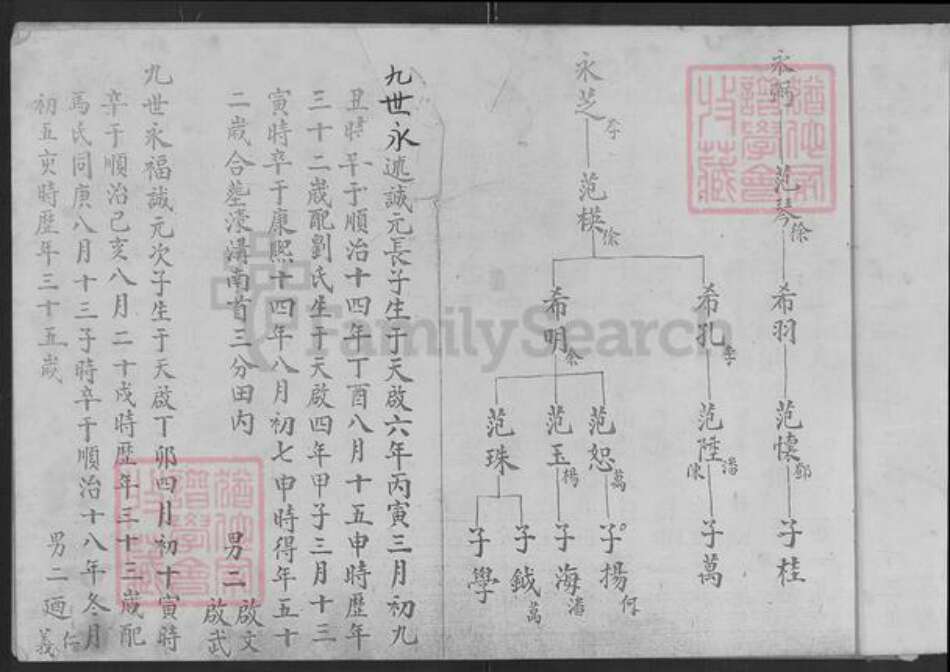 永 范琴徐 希羽 范懷鄭 子桂
永芝李 范横徐
希孔李 范陞潘陳 子萬
希明余
范恕萬 子揚何
范玉楊 子海潘
范珠 子鉞萬
子學
九世永述誠元長子生于天啟六年丙寅三月初九
丑時卒于順治十四年丁酉八月十五申時歷年
三十二歲配劉氏生于天啟四年甲子三月十三
寅時卒于康熙十四年八月初七申時得年五十
二歲合塟濠溝南首三分田内
男二 啟文
啟武
九世永福誠元次子生于天啟丁卯四月初十寅時
卒于順治己亥八月二十戌時歷年三十三歲配
馬氏同庚八月十三子時卒于順治十八年冬月
初五亥時歷年三十五歲
男二 廼仁
義
FamilySearch